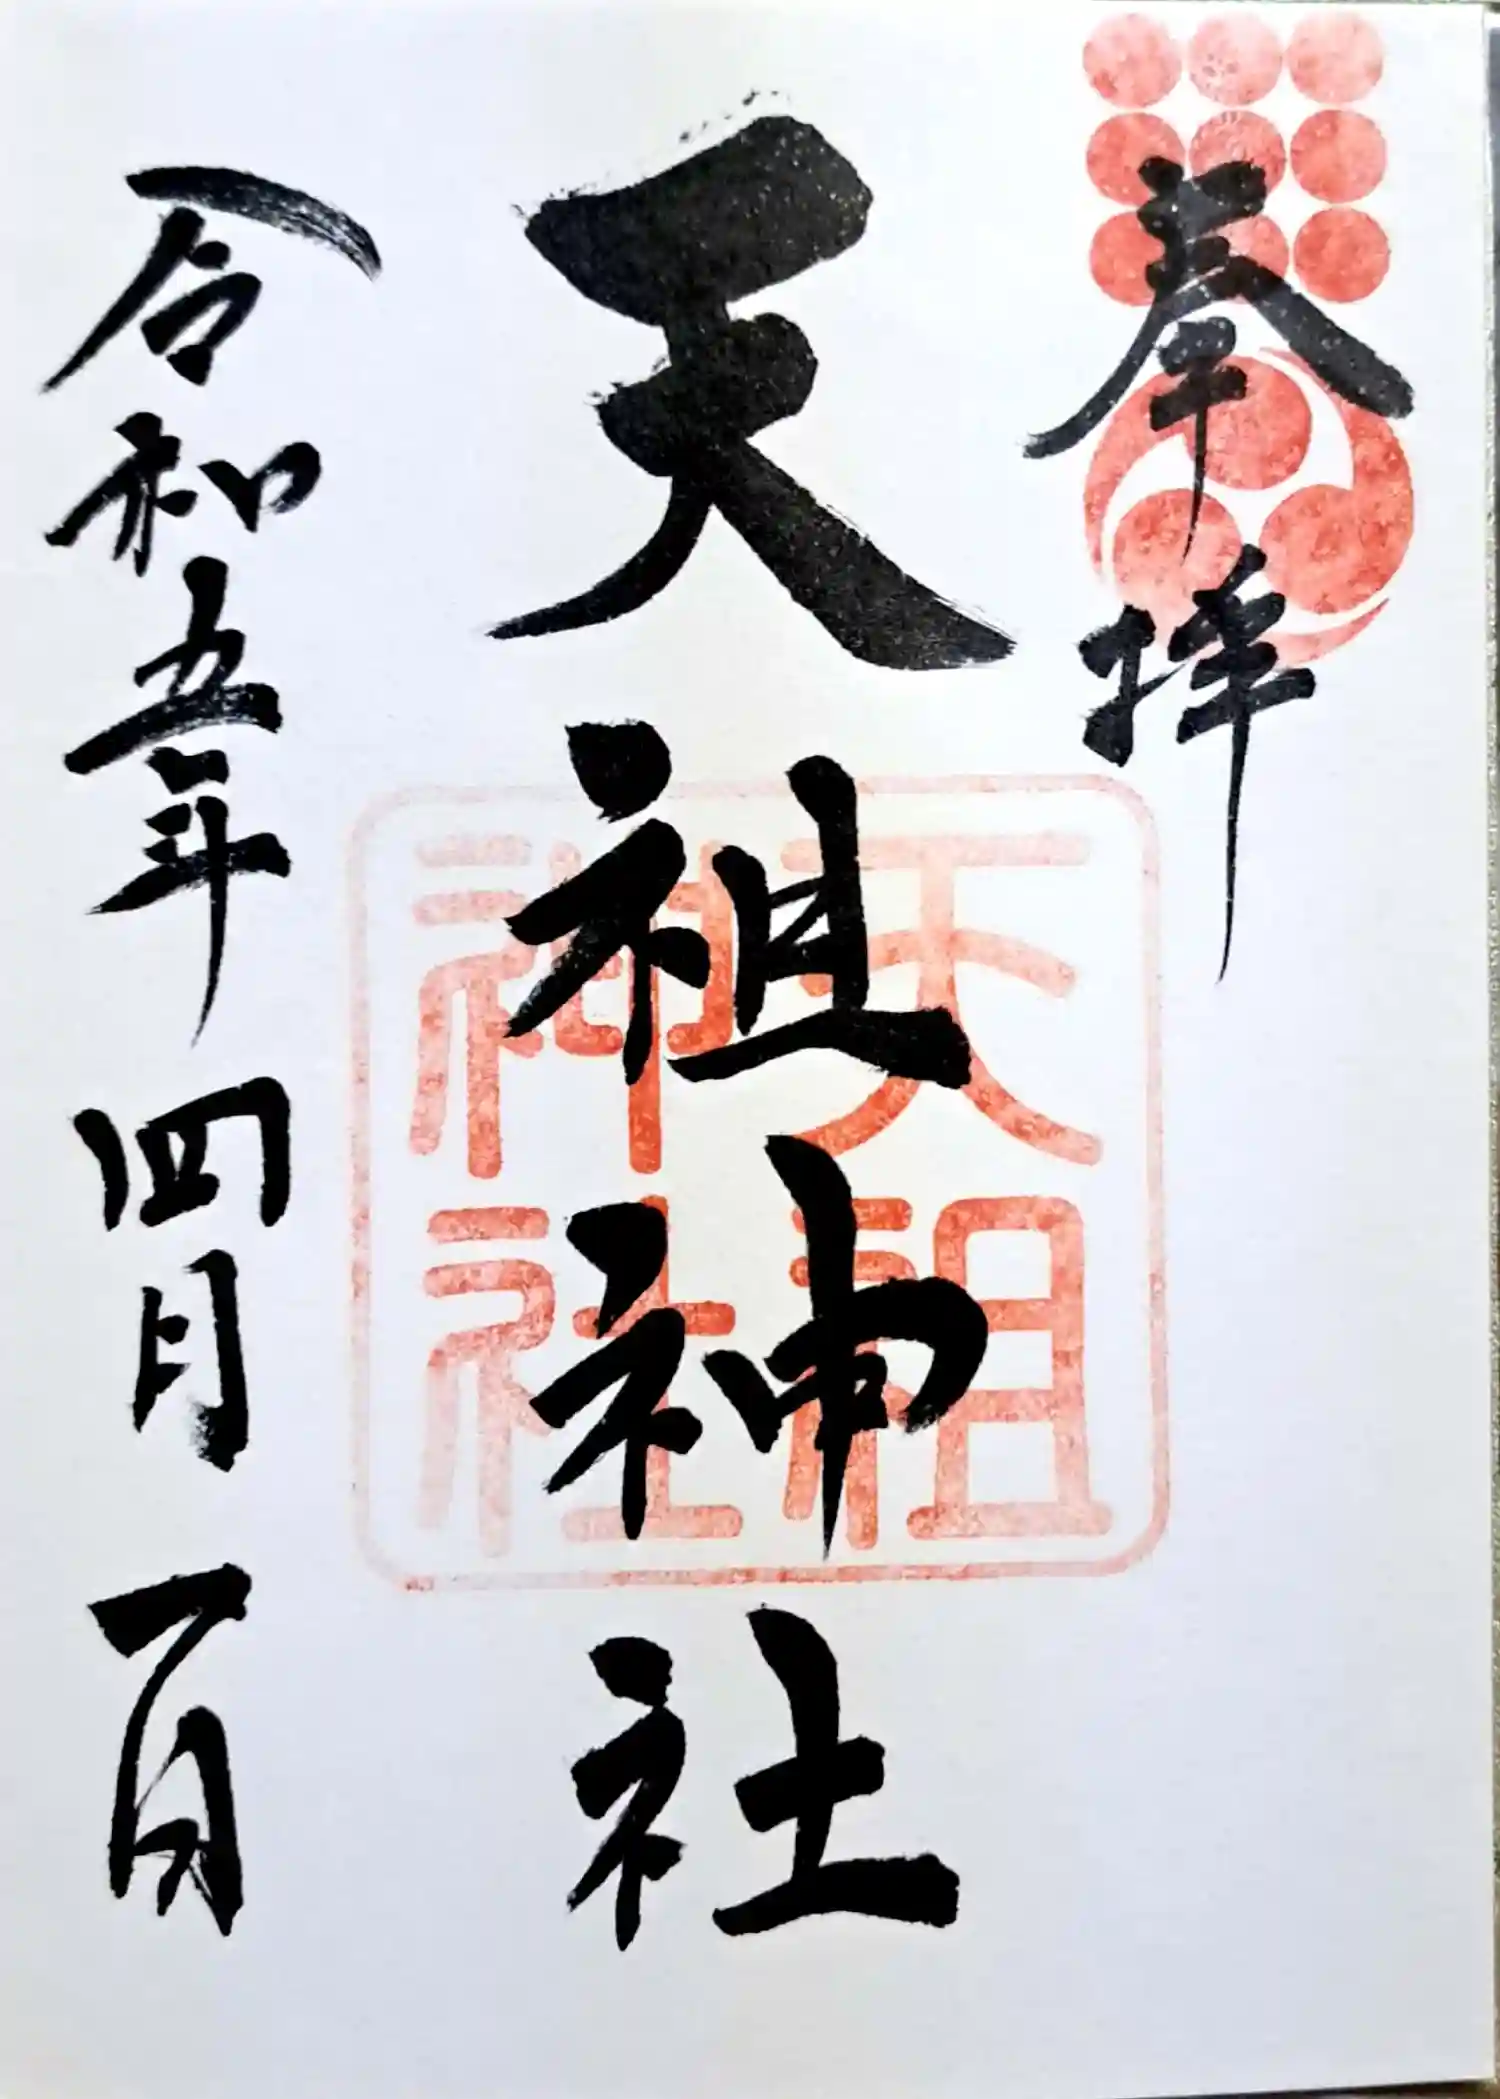 奉拝
天祖神社
天祖神社
令和五年四月一日